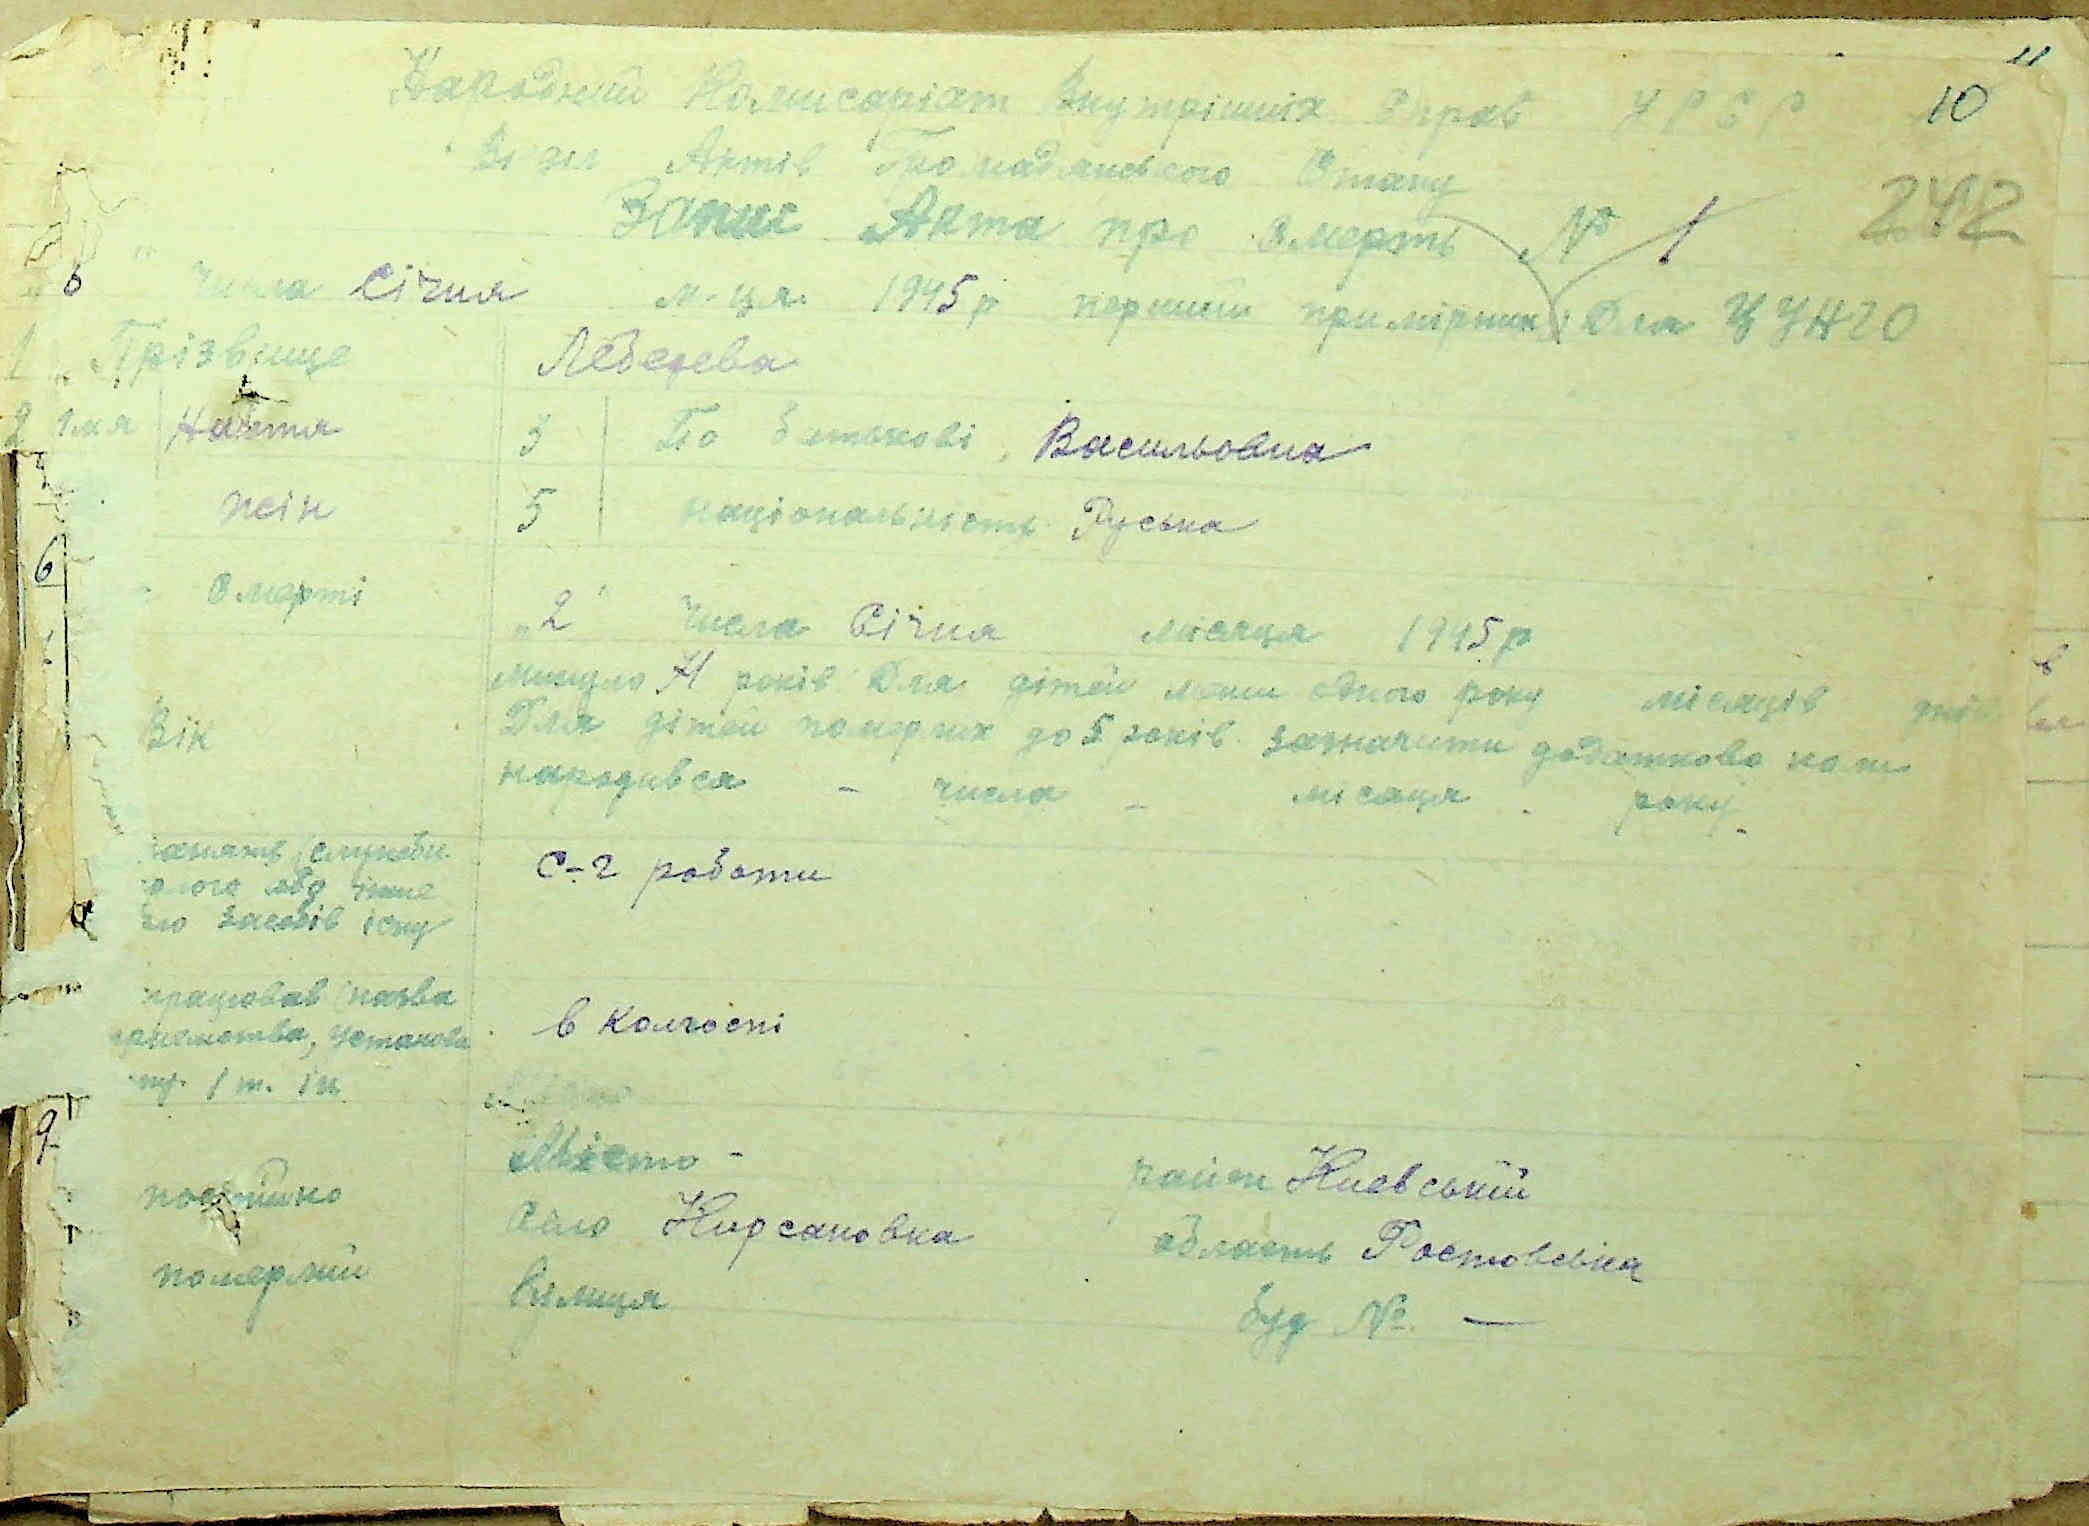 11
Народний Комисаріат Внутрішніх Справ УРСР 10
Актів Громадянського Стану
Запис Акта про Смерть № 1 242
6 " числа Січня м-ця 1945 р перший примірник Для ЦУНГО
1 Прізвище Лебедева
2 Імя Настя 3 По батькові Васильовна
жін 5 національність Руська
6
Смерті „2" числа Січня місяця 1945 р
минуло років Для дітей менш одного року місяців днів
Вік Для дітей померших до 5 років зазначити додатково коли
народився - числа - місяця - року -
занять (служби
або інше С-г роботи
засобів існу
працював (назва
установи в Колгоспі
і т. ін
9
Місто - район Киевській
постійно Село Кирсановка область Ростовська
померлий Вулиця буд № —